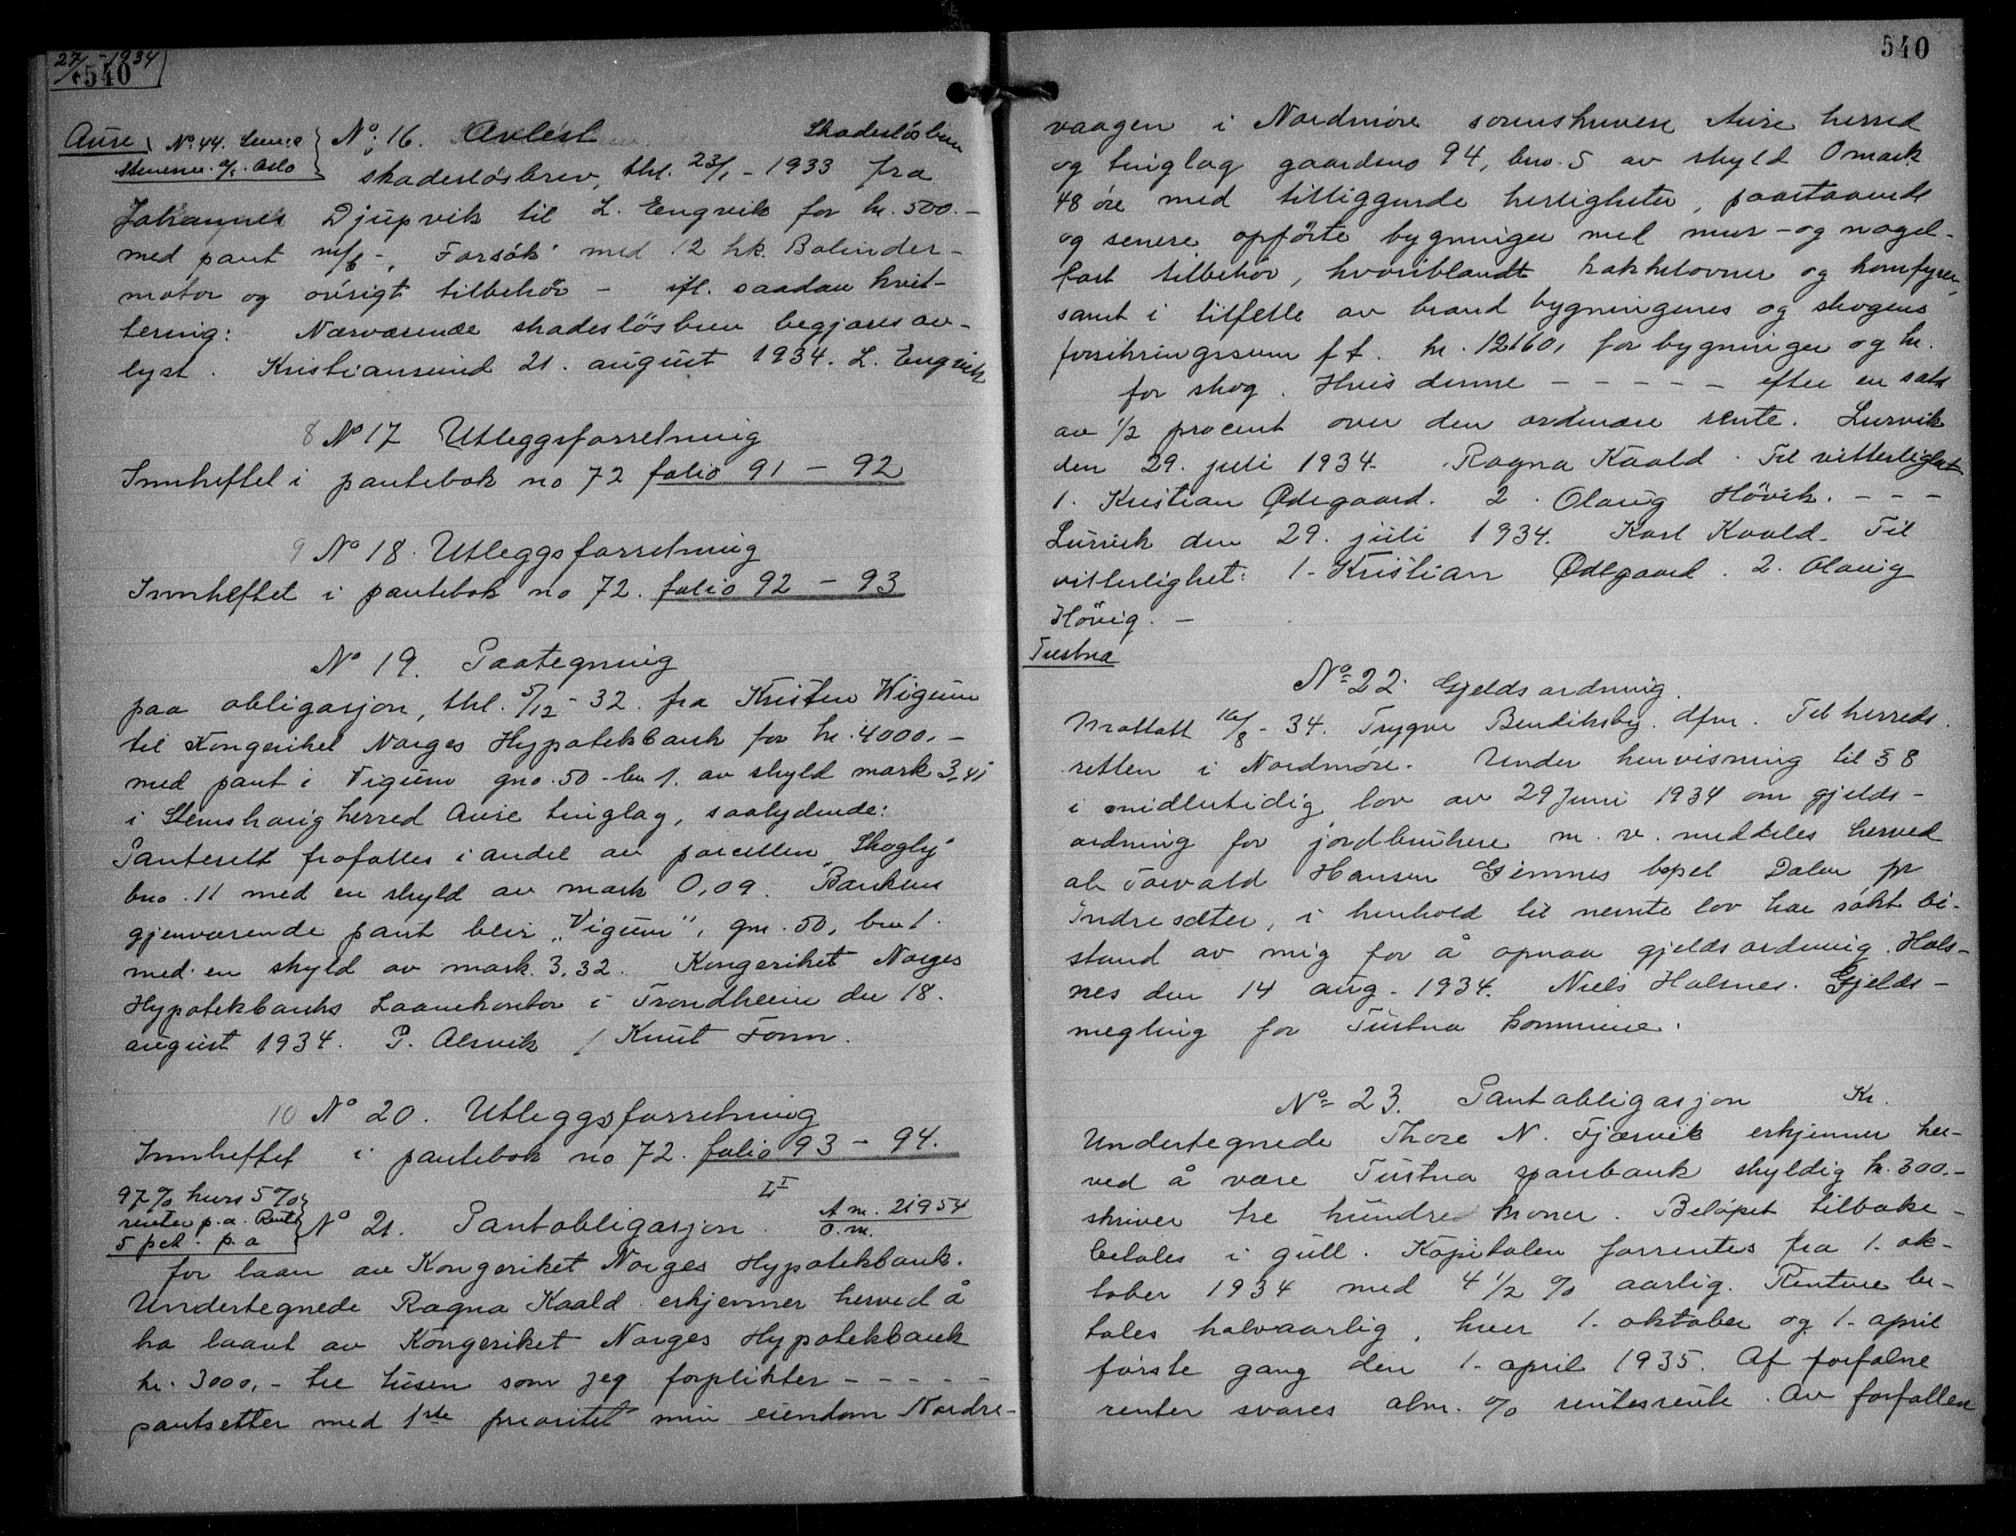 27/8-1934
540
Aure No. 44.
Stenersen a/s. Oslo
No. 16. Avlest Skadesløsbrev
skadesløsbrev, thl. 23/1 - 1933 fra
Johannes Djupvik til L. Engvik for kr. 500.-
med pant m/b -„ Forsøk" med 12 hk. Bolinder-
motor og øvrigt tilbehør - ifl. saadan kvit-
tering: Nærværende skadesløsbrev begjæres av-
lyst. Kristiansund 21. august 1934. L. Engvik
8 No 17 Utleggsforretning
Innheftet i pantebok no 72 folio 91 - 92
9 No 18. Utleggsforretning
Innheftet i pantebok no 72. folio 92 - 93
No 19. Paategning
paa obligasjon, thl. 5/12 - 32. fra Kristen Wigum
til Kongeriket Norges Hypotekbank for kr. 4000.-
med pant i Vigum gno. 50 - bn 1. av skyld mark 3,41
i Stemshaug herred Aure tinglag, saalydende:
Panterett frafalles i andel av parcellen „Skogly"
bno. 11 med en skyld av mark 0,09. Bankens
gjenværende pant blir „Vigum", gnr. 50, bnr 1.
med en skyld av mark. 3.32. Kongeriket Norges
Hypotekbanks Laanekontor i Trondheim den 18.
august 1934. P. Alsvik / Knut Fonn.
10 No 20. Utleggsforretning
Innheftet i pantebok no 72. folio 93 - 94.
97% kurs 5%
renter p.a. Rente
5 pct. p.a
No 21. Pantobligasjon. A m. 21954
O. m.
for laan av Kongeriket Norges Hypotekbank.
Undertegnede Ragna Kaald erkjenner herved å
ha laant av Kongeriket Norges Hypotekbank
kr. 3000,- tre tusen som jeg forplikter - - - - -
pantsetter med 1ste prioritet min eiendom Nordre-
540
vaagen i Nordmøre sorenskriveri Aure herred
og tinglag gaardsno 94, bno. 5 av skyld 0 mark
48 øre med tilliggende herligheter, paastaaende
og senere opførte bygninger med mur- og nagel-
fast tilbehør, hvoriblandt kakkelovner og komfyrer,
samt i tilfelle av brand bygningenes og skogens
forsikringssum f.t. kr. 12160, for bygninger og kr.
for skog. Hvis denne - - - - - efter en sats
av 1/2 procent over den ordinære rente. Lurvik
den 29. juli 1934. Ragna Kaald. Til vitterlighet
1. Kristian Ødegaard. 2. Olaug Hövik. - - -
Lurvik den 29. juli 1934. Karl Kaald. Til
vitterlighet: 1. Kristian Ødegaard. 2. Olaug
Hövig. -
Tustna
No 22. Gjeldsordning.
Mottatt 16/8 - 34. Trygve Bendiksby. dfm. Til herreds-
retten i Nordmøre. Under henvisning til § 8
i midlertidig lov av 29 juni 1934 om gjelds-
ordning for jordbrukere m. v. meddeles herved
at Torvald Hansen Gimnes bopel Dalen pr
Indresæter, i henhold til nevnte lov har søkt bi-
stand av mig for å opnaa gjeldsordning. Hals-
nes den 14 aug. 1934. Niels Halsnes. Gjelds-
megling for Tustna kommune.
No 23. Pantobligasjon Kr.
Undertegnede Thore N. Fjærvik erkjenner her-
ved å være Tustna sparebank skyldig kr. 300.-
skriver tre hundre kroner. Beløpet tilbake-
betales i gull. Kapitalen forrentes fra 1. ok-
tober 1934 med 4 1/2 % aarlig. Rentene be-
tales halvaarlig, hver 1. oktober og 1. april
første gang den 1. april 1935. Af forfalne
renter svares alm. % rentesrente. Av forfallen